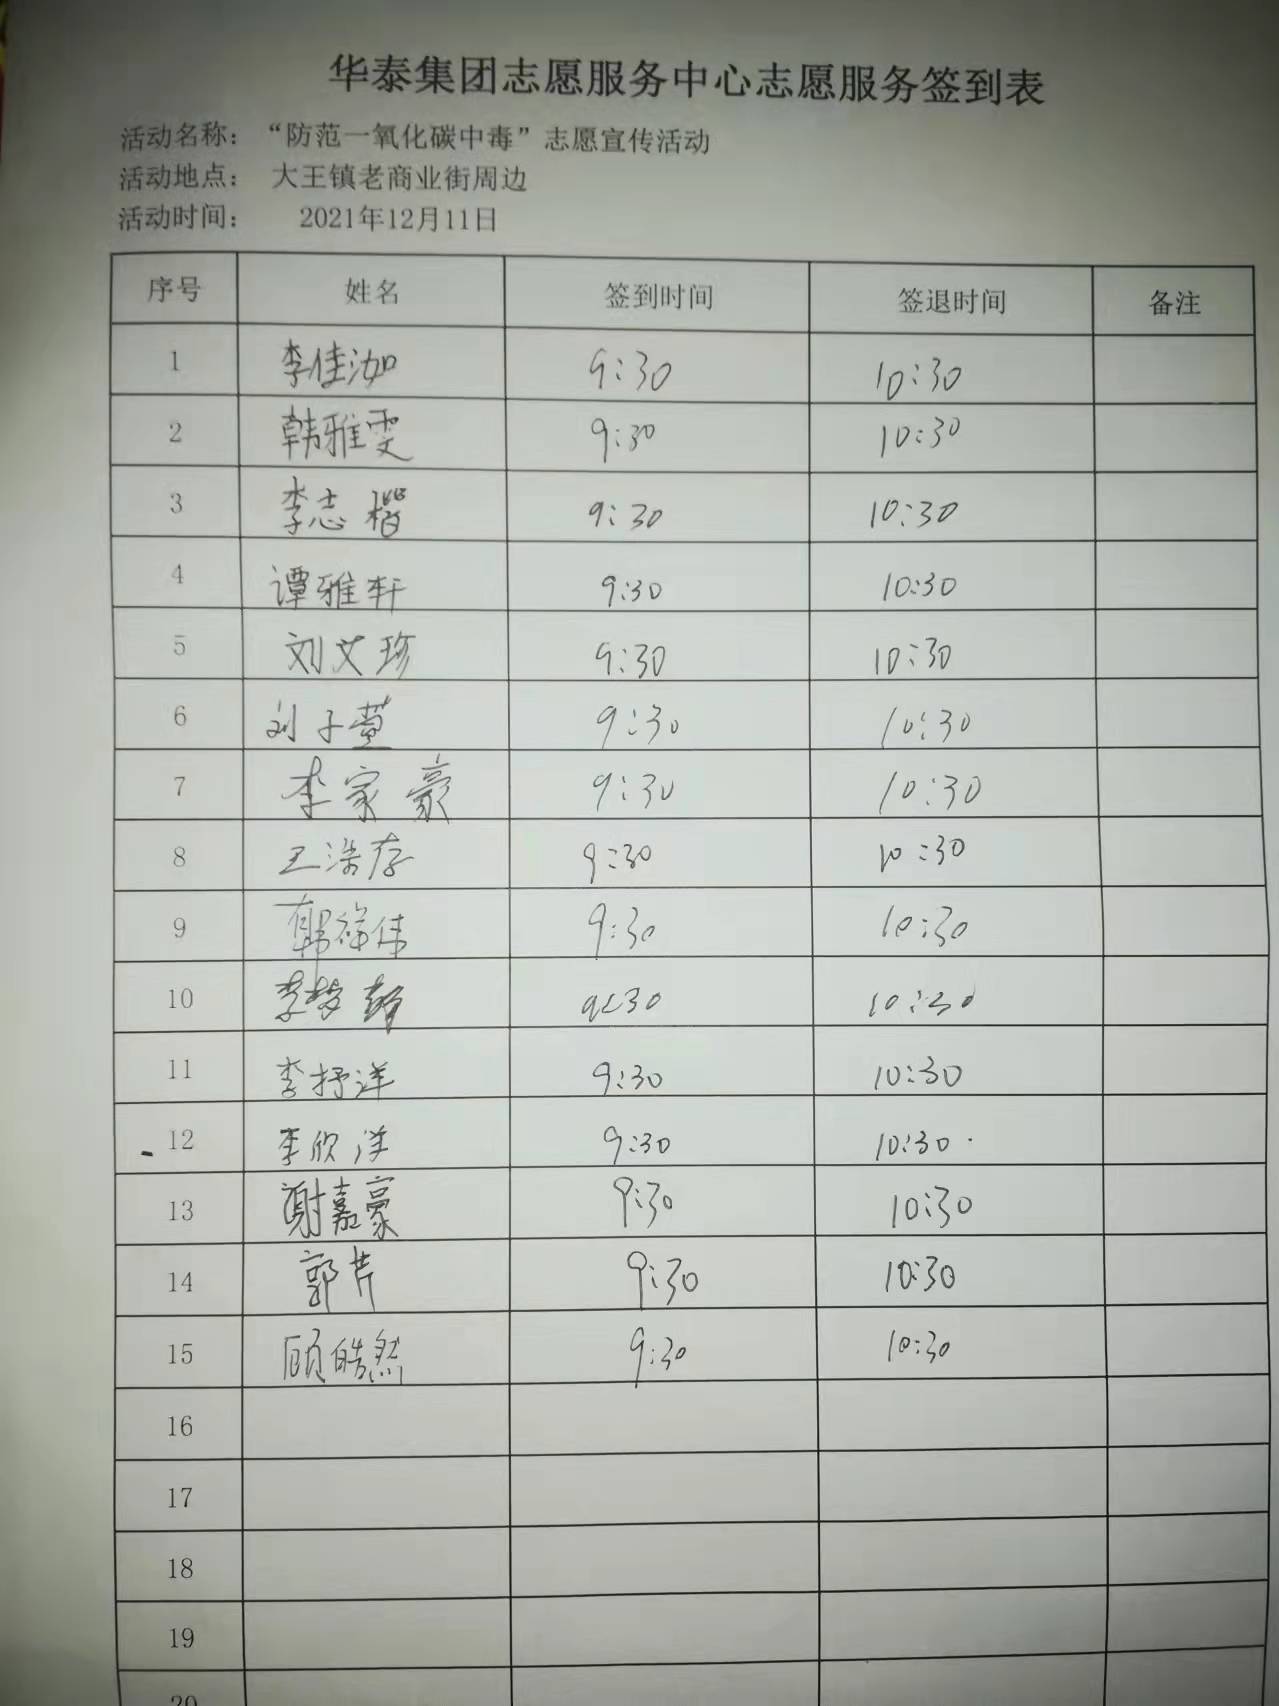 华泰集团志愿服务中心志愿服务签到表
活动名称：“防范一氧化碳中毒”志愿宣传活动
活动地点： 大王镇老商业街周边
活动时间： 2021年12月11日
序号 姓名 签到时间 签退时间 备注
1 李佳泇 9:30 10:30
2 韩雅雯 9:30 10:30
3 李志楷 9:30 10:30
4 谭雅轩 9:30 10:30
5 刘艾珍 9:30 10:30
6 刘子萱 9:30 10:30
7 李家豪 9:30 10:30
8 王浩存 9:30 10:30
9 韩祥伟 9:30 10:30
10 李梦 9:30 10:30
11 李抒洋 9:30 10:30
12 李欣洋 9:30 10:30
13 谢嘉豪 9:30 10:30
14 郭芹 9:30 10:30
15 顾皓然 9:30 10:30
16
17
18
19
20